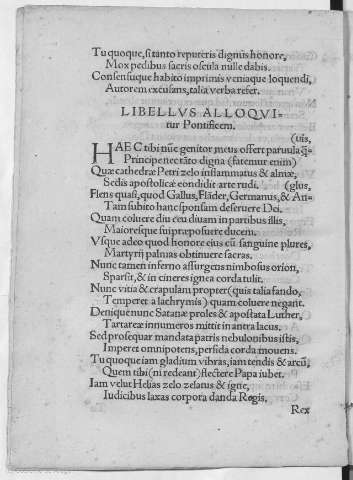 Tu quoque, si tanto reputeris dignus honore,
Mox pedibus sacris oscula nulle dabis.
Consensuque habito imprimis veniaque loquendi,
Autorem excusans, talia verba refer.
LIBELLVS ALLOQVI-
tur Pontificem.
(uis,
HAEC tibi nũc genitor meus offert paruula q̃-
Principe nec tãto digna (fatemur enim)
Quæ cathedræ Petri zelo inflammatus & almæ,
Sedis apostolicæ condidit arte rudi. (glus,
Flens quasi, quod Gallus, Flãder, Germanus, & An-
Tam subito hanc sponsam deseruere Dei.
Quam coluere diu ceu diuam in partibus illis,
Maioresque sui præposuere ducem.
Vsque adeo quod honore eius cũ sanguine plures,
Martyrij palmas obtinuere sacras.
Nunc tamen inferno assurgens nimbosus orion,
Sparsit, & in cineres ignea corda tulit.
Nunc vitia & crapulam propter (quis talia fando,
Temperet a lachrymis) quam coluere negant.
Denique nunc Satanæ proles & apostata Luther,
Tartareæ innumeros mittit in antra lacus.
Sed prosequar mandata patris nebulonibus istis,
Imperet omnipotens, perfida corda mouens.
Tu quoque iam gladium vibras, iam tendis & arcũ,
Quem tibi (ni redeant) flectere Papa iubet.
Iam velut Helias zelo zelatus & igne,
Iudicibus laxas corpora danda Regis.
Rex